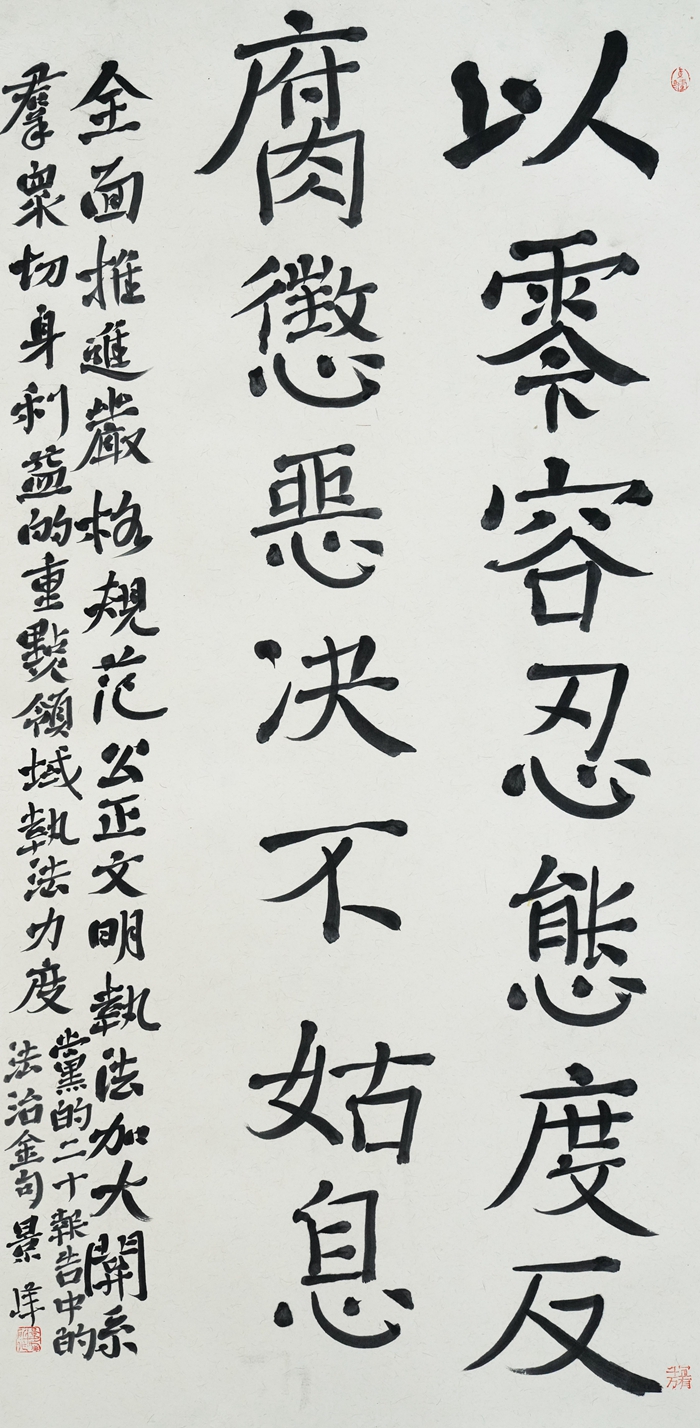 以零容忍態度反
腐懲惡决不姑息
全面推進嚴格規范公正文明執法加大開系
羣衆切身利益的重點領域執法力度
黨的二十報告中的
法治金句 景